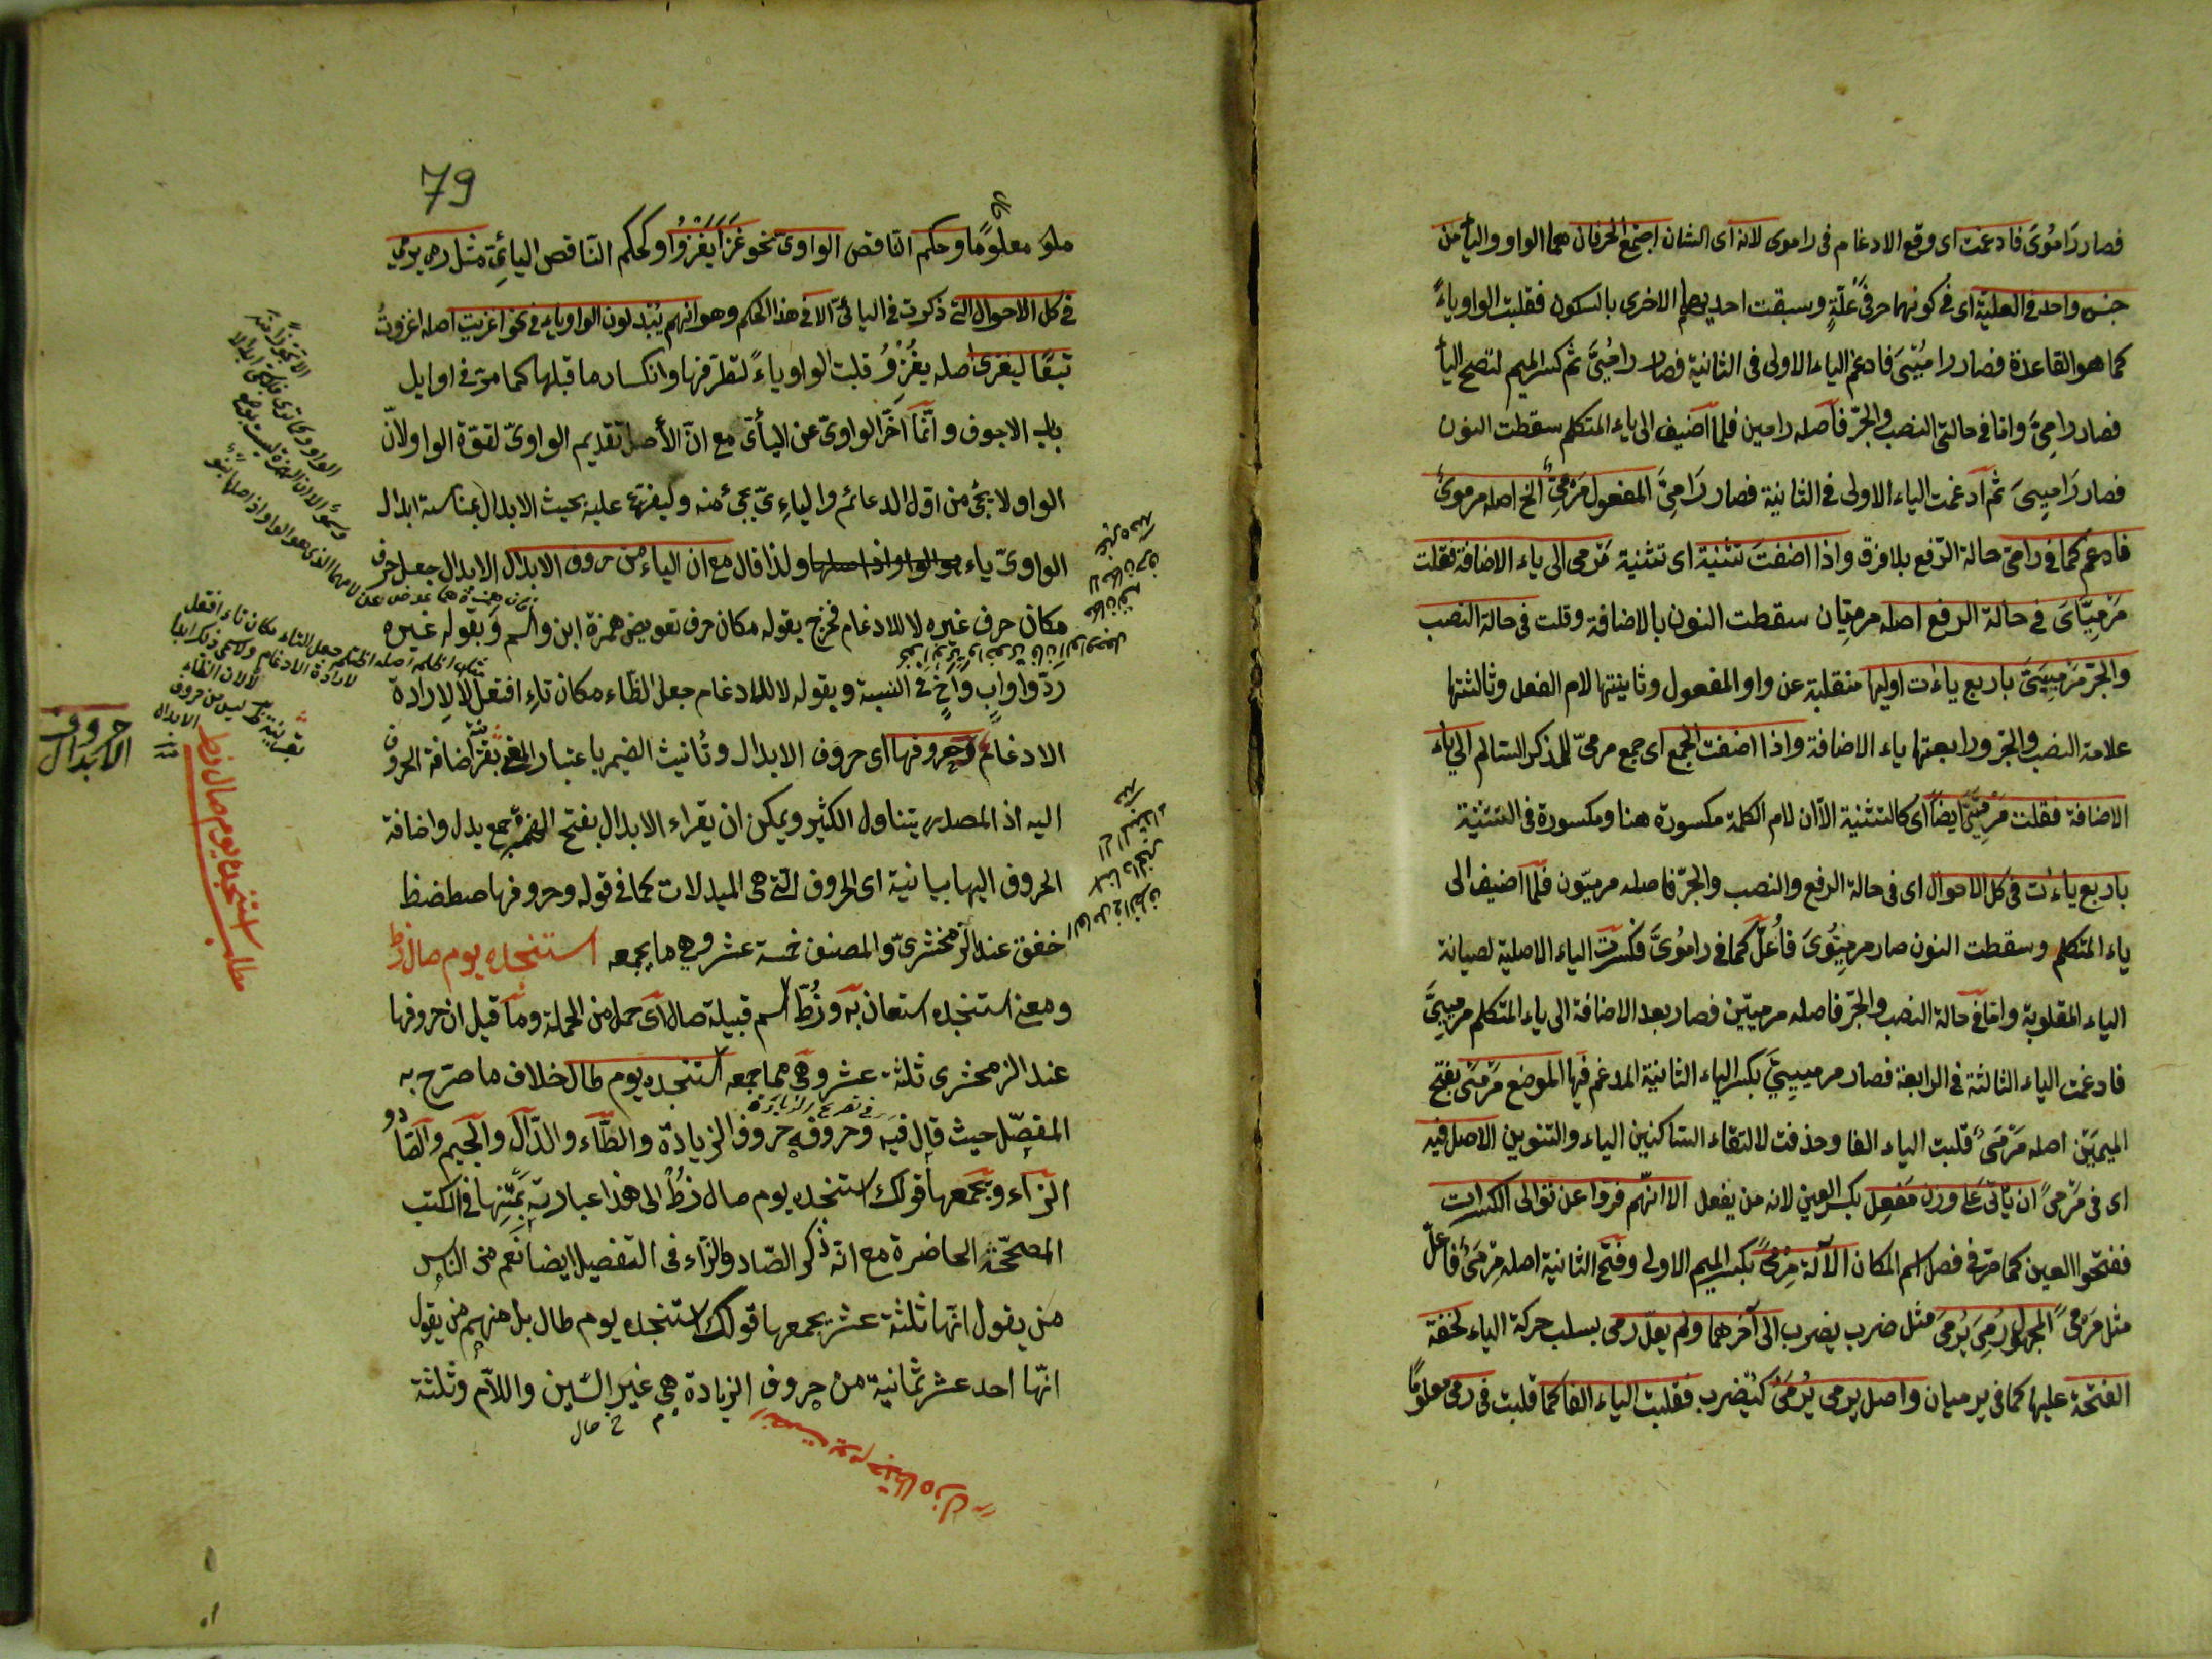 فصار رَامُوىَ فادغمت اى وقع الادغام فى راموى لانه اى الشان اجتمع الحرفان هما الواو واليأ من
جنس واحد فى العلية اى فى كونهما حرفى علّةٍ وسبقت احديهما الاخرى بالسكون فقلبت الواو ياءً
كما هو القاعدة فصار راميْىَ فادغم الياء الاولى فى الثانية فصار راميَُّ ثم كسر الميم لتصح اليأ
فصار رامِىَّ وامّا فى حالتى النصب والجرّ فاصله رامين فلما اضيف الى ياء المتكلم سقطت النون
فصار رَامِيىَ ثم ادغمت الياء الاولى فى الثانية فصار رَامِىَّ المفعول مَرْمِىٌّ الخ اصله مرموىٌ
فادغم كما فى رامىّ حالة الرّفع بلا فرق واذا اضفتَ تثنية اى تثنية مَرْمى الى ياء الاضافة فقلت
مَرْمِيَّاىَ فى حالة الرفع اصله مرميّان سقطت النون بالاضافة وقلت فى حالة النصب
والجرّ مَرْمِيَيَّ باربع ياءٰت اوليها منقلبة عن واو المفعول وثانيتها لام الفعل وثالثتها
علامة النصب والجرّ ورابعتها ياء الاضافة واذا اضفت الجمع اى جمع مرمىّ للمذكر السالم الى ياء
الاضافة فقلت مَرْمِيِّىَّ ايضًا اى كالتثنية الاّ ان لام الكلمة مكسورة هنا ومكسورة فى التثنية
باربع ياءٰت فى كل الاحوال اى فى حالة الرفع والنصب والجرّ فاصله مرميّون فلمّا اضيف الى
ياء المتكلم وسقطت النون صار مرميّوىَ فاُعلّ كما فى رامُوىَ فكسرت الياء الاصلية لصيانة
الياء المقلوبة وامّا فى حالة النصب والجرّ فاصله مرميّين فصار بعد الاضافة الى ياء المتكلم مرميّيىَ
فادغمت الياء الثالثة فى الرابعة فصار مرمييىَّ بكسر الياء الثانية المدغم فيها الموضع مَرْمىً بفتح
الميمَيْن اصله مَرْمَىٌ قلبت الياء الفا وحذفت لالتقاء الساكنين الياء والتنوين الاصل فيه
اى فى مَرْمىً ان يأتى على وزن مَفعِل بكسر العين لانه من يفعل الا انّهم فرّوا عن توالى الكسرات
ففتحوا العين كما مرّ فى فصل اسم المكان الآلة مِرْمىً بكسر الميم الاولى وفتح الثانية اصله مِرْمَىٌ فاعلّ
مثل مَرْمىً المجهول رُمِىَ يُرْمَى مثل ضرب يضرب الى آخرهما ولم يعلّ رمى بسلب حركة الياء لخفة
الفتحة عليها كما فى يرميان واصل يرمى يُرْمَىُ كيُضرب فقلبت الياء الفا كما قلبت فى رمى معلومًا
79
معلومًا وحكم النّاقص الواوىّ نحو غَزَا يَغْزُوا كحكم النّاقص اليائىّ مثل رمى يرمى
فى كل الاحوال التى ذكرت فى اليائىّ الا فى هذا الحكم وهو انهم يُبْدلون الواو ياء فى نحو اغزيت اصله اغزوتُ
تبعًا ليغزى اصله يغْزِوُ قلبت الواو ياءً لتطرّفها وانكسار ما قبلها كما مرّ فى اوايل
باب الاجوف وانّما اخّر الواوىّ عن اليأىّ مع انّ الأصل تقديم الواوىّ لقوّة الواو لانّ
الواو لا يجئ من اوّل الدعائم والياء يجئ منه وليفرّع عليه بحيث الابدال بمناسبة ابدال
الواوىّ ياء ولذا قال مع ان الياء من حروف الابدال الابدال جعل حرف
مكان حرف غيره لا للادغام فخرج بقوله مكان حرف تعويض همزة ابن واسم وبقوله غيره
ردّ واو ابٍ واخٍ فى النسبة وبقوله لا للادغام جعل الظاء مكان تاءِ افتعل لاِرادة
الادغام وحروفها اى حروف الابدال وتأنيث الضمير باعتبار اضافة الحروف
اليه اذ المصدر يتناول الكثير ويمكن ان يقراء الابدال بفتح الهمزة جمع بدل واضافة
الحروف اليها بيانية اى الحروف التى هى المبدلات كما فى قوله وحروفها صطضظ
خفق عند الزمخشرىّ والمصنف خمسة عشر وهى ما يجمعه استنجده يوم صال زطّ
ومعنى استنجده استعان به وزُطّ اسم قبيلة صال اى حمل من الحملة وما قيل ان حروفها
عند الزمخشرى ثلثة عشر وهى مما جمعه استنجده يوم طال خلاف ما صرّح به
المفصّل حيث قال فيه وحروفه حروف الزيادة والطّاء والدّال والجيم والصّاد و
الزاء ويجمعها قولك استنجده يوم صال زطٌّ الى هذا عبارته فى الكتب
المصحّحة الحاضرة مع انّه ذكر الصّاد والزاء فى التفصيل ايضا نَعم من الناس
من يقول انّها ثلثة عشر يجمعها قولك استنجده يوم طال بل منهم من يقول
انّها احد عشر ثمانية من حروف الزيادة هى غير السّين واللاّم وثلثة
حروف
الابدال
مطلب استنجده يوم صال زط